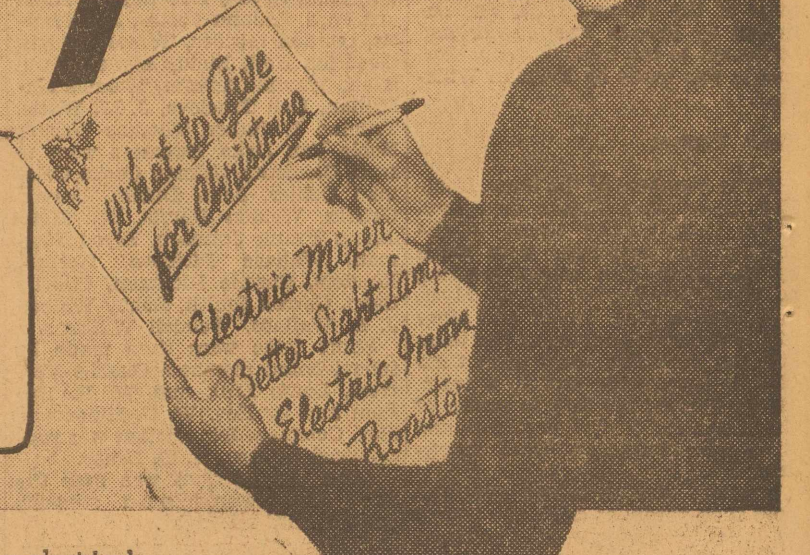 What to Give
for Christmas
Electric Mixer
Better Sight Lamp
Electric Iron
Roaster